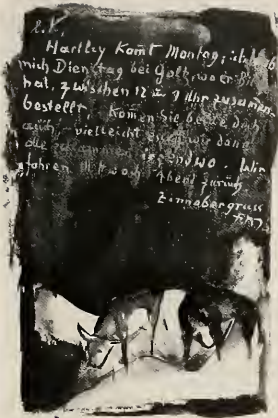 L. K,
Hartley komt Montag; ich
mich Dienstag bei Goltz, wo er
hat, zwischen 12 u 1 Uhr zusamen
bestellt. Komen Sie bitte doch
auch, vielleicht wir dann
alle zusammen irgendwo. Wir
fahren Mittwoch Abend zurück
Zinnobergruss